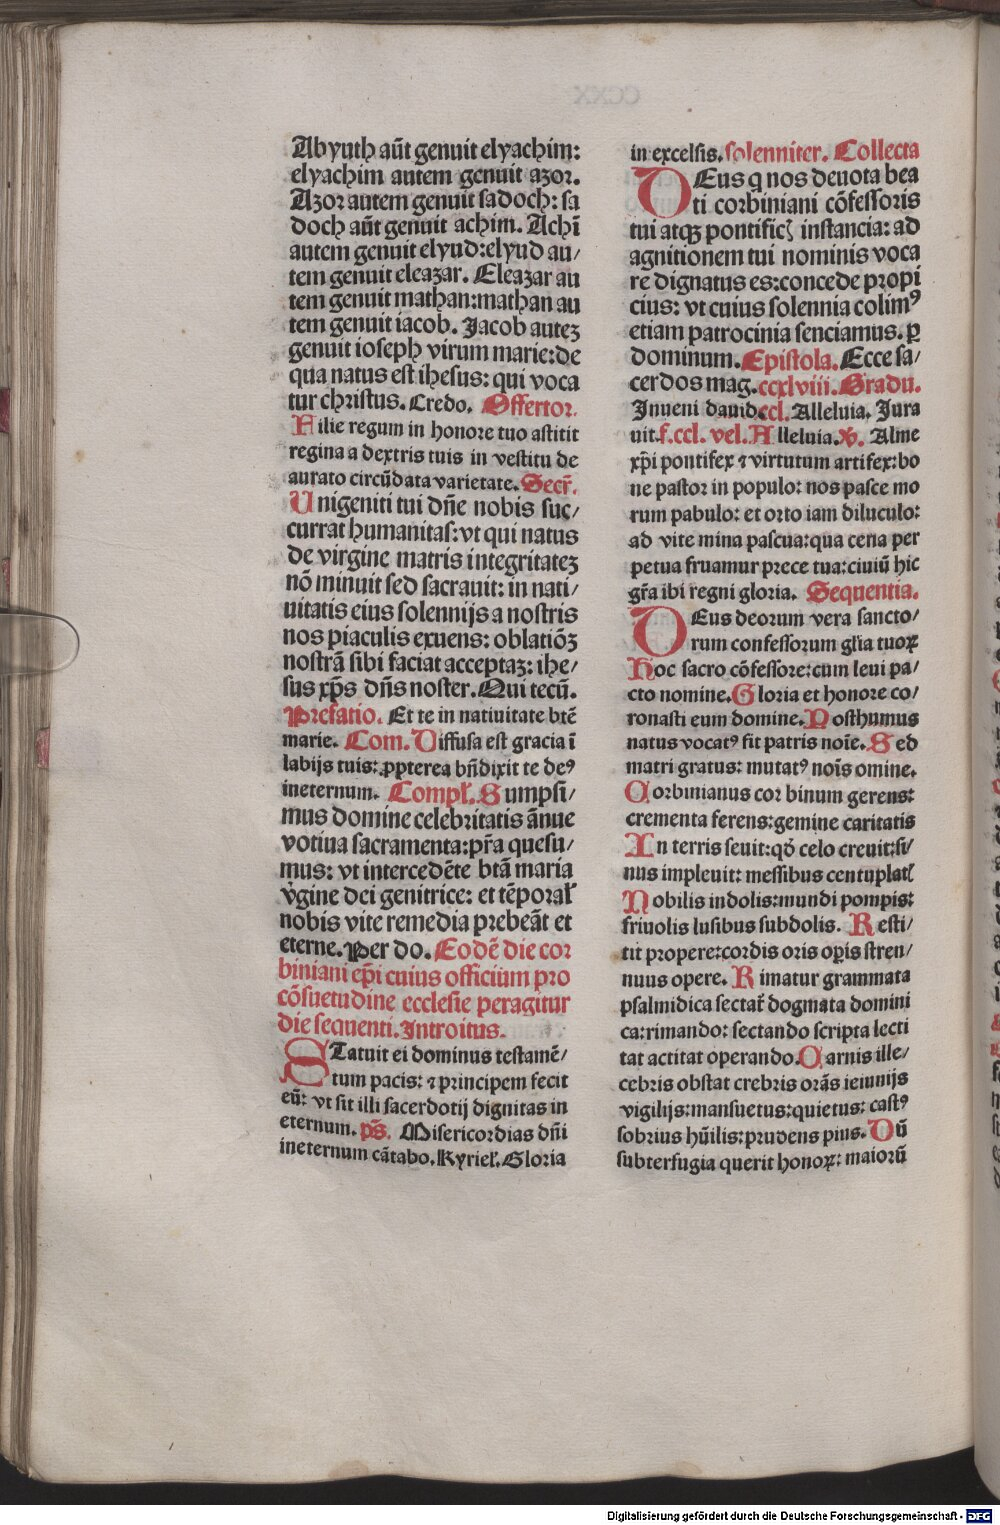 Abyuth aūt genuit elyachim:
elyachim autem genuit azor.
Azor autem genuit sadoch: sa
doch aūt genuit achim. Achī
autem genuit elyud: elyud au/
tem genuit eleazar. Eleazar au
tem genuit mathan: mathan au
tem genuit iacob. Jacob auteꝫ
genuit ioseph virum marie: de
qua natus est ihesus: qui voca
tur christus. Credo. Offertor.
Filie regum in honore tuo astitit
regina a dextris tuis in vestitu de
aurato circūdata varietate. Secr̄.
Unigeniti tui dn̄e nobis suc/
currat humanitas: vt qui natus
de virgine matris integritateꝫ
nō minuit sed sacrauit: in nati/
uitatis eius solennijs a nostris
nos piaculis exuens: oblatiōꝫ
nostrā sibi faciat acceptaꝫ: ihe/
sus xp̄s dn̄s noster. Qui tecū.
Prefatio. Et te in natiuitate btē
marie. Com. Diffusa est gracia ī
labijs tuis: ꝓpterea bn̄dixit te deꝰ
ineternum. Compl̄. Sumpsi/
mus domine celebritatis ānue
votiua sacramenta: pr̄a quesu/
mus: vt intercedēte btā maria
v̓gine dei genitrice: et tēporal̄
nobis vite remedia prebeāt et
eterne. Per do. Eodē die cor
biniani ep̄i cuius officium pro
cōsuetudine ecclesie peragitur
die sequenti. Introitus.
STatuit ei dominus testamē/
tum pacis: ⁊ principem fecit
eū: vt sit illi sacerdotij dignitas in
eternum. ps̄. Misericordias dn̄i
ineternum cātabo. Kyriel̄. Gloria
in excelsis. solenniter. Collecta
DEus q nos deuota bea
ti corbiniani cōfessoris
tui atqꝫ pontificꝭ instancia: ad
agnitionem tui nominis voca
re dignatus es: concede propi
cius: vt cuius solennia colimꝰ
etiam patrocinia senciamus. ꝑ
dominum. Epistola. Ecce sa/
cerdos mag. ccxlviii. Gradu.
Inueni dauid. ccl. Alleluia. Jura
uit. f. ccl. vel. Alleluia. ℣. Alme
xp̄i pontifex ⁊ virtutum artifex: bo
ne pastor in populo: nos pasce mo
rum pabulo: et orto iam diluculo:
ad vite mina pascua: qua cena per
petua fruamur prece tua: ciuiū hic
gr̄a ibi regni gloria. Sequentia.
DEus deorum vera sancto/
rum confessorum gl̄ia tuoꝝ
Hoc sacro cōfessore: cum leui pa/
cto nomine. Gloria et honore co/
ronasti eum domine. Posthumus
natus vocatꝰ fit patris noīe. Sed
matri gratus: mutatꝰ noīs omine.
Corbinianus cor binum gerens:
crementa ferens: gemine caritatis
In terris seuit: qō celo creuit: si/
nus impleuit: messibus centuplatꝭ
Nobilis indolis: mundi pompis:
friuolis lusibus subdolis. Resti/
tit propere: cordis oris oꝑis stren/
nuus opere. Rimatur grammata
psalmidica sectar̄ dogmata domini
ca: rimando: sectando scripta lecti
tat actitat operando. Carnis ille/
cebris obstat crebris orās ieiunijs
vigilijs: mansuetus: quietus: castꝰ
sobrius hūilis: prudens pius. Dū
subterfugia querit honoꝝ: maiorū
CCXX
Digitalisierung gefördert durch die Deutsche Forschungsgemeinschaft - DFG